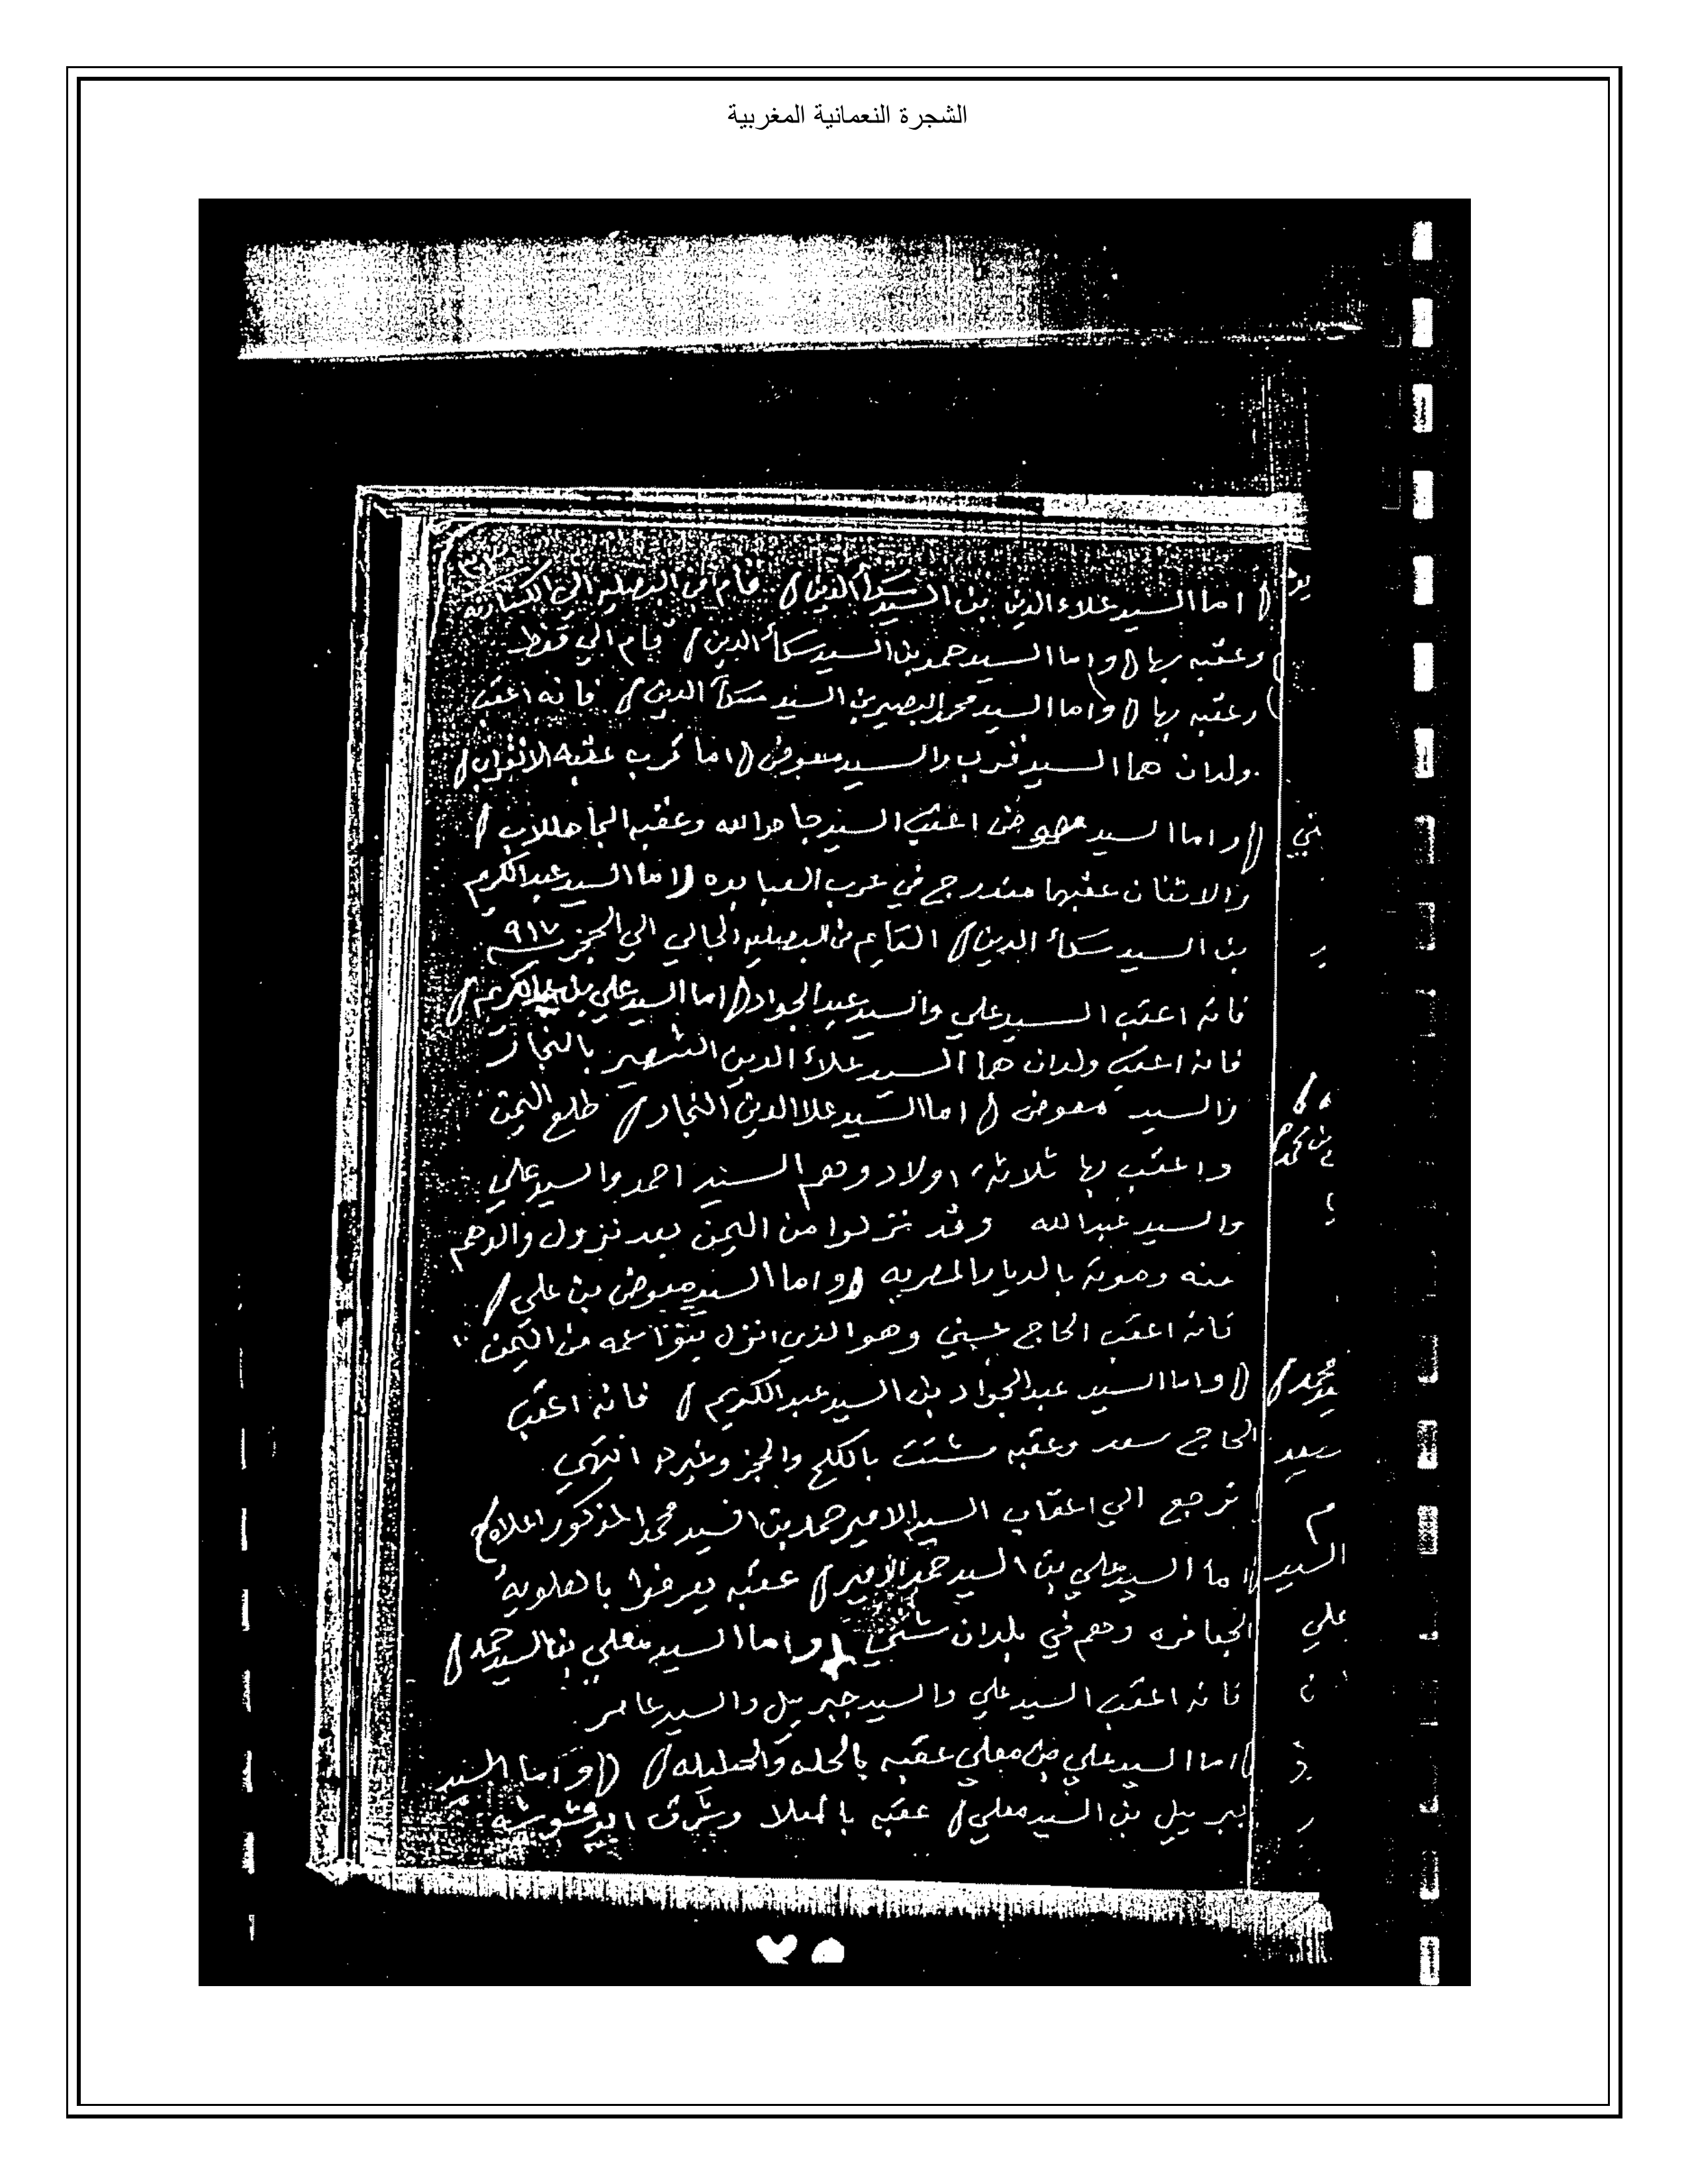 الشجرة النعمانية المغربية
اما السيد علاء الدين بن السيد سكاً الدين قام من البصليه الي
وعقبه بها واما السيد حمد بن السيد سكاً الدين قام الي قفط
وعقبه بها واما السيد محمد البصير بن السيد سكاً الدين فانه اعقب
ولدان هما السيد والسيد معوض اما عقبه
واما السيد معوض اعقب السيد جاد الله وعقبه
والاثنان عقبهما مندرج في عرب العبابده اما السيد عبد الكريم
بن السيد سكاً الدين القايم من البصليه الجالي الي الحجز سنة ٩١٧
فانه اعقب السيد علي والسيد عبد الجواد اما السيد علي بن عبد الكريم
فانه اعقب ولدان هما السيد علاء الدين الشهير بالنجار
والسيد معوض اما السيد علا الدين النجار طلع اليمن
واعقب بها ثلاثة اولاد وهم السيد احمد والسيد علي
والسيد عبد الله وقد نزلوا من اليمن بعد نزول والدهم
منه وموته بالديار المصريه واما السيد معوض بن علي
فانه اعقب الحاج عيسي وهو الذي انزل عمه من اليمن
واما السيد عبد الجواد بن السيد عبد الكريم فانه اعقب
الحاج سعد وعقبه مشتت بالكلح والحجز وغيره انتهي
نرجع الي اعقاب السيد الامير حمد بن السيد محمد المذكور اعلاه
اما السيد علي بن السيد حمد الامير عقبه يعرفوا بالعلويه
الجعافره وهم في بلدان شتي واما السيد معلي بن السيد حمد
فانه اعقب السيد علي والسيد جبريل والسيد عامر
اما السيد علي بن معلي عقبه بالحله والحليله واما السيد
جبريل بن السيد معلي عقبه بالمعلا وشرق